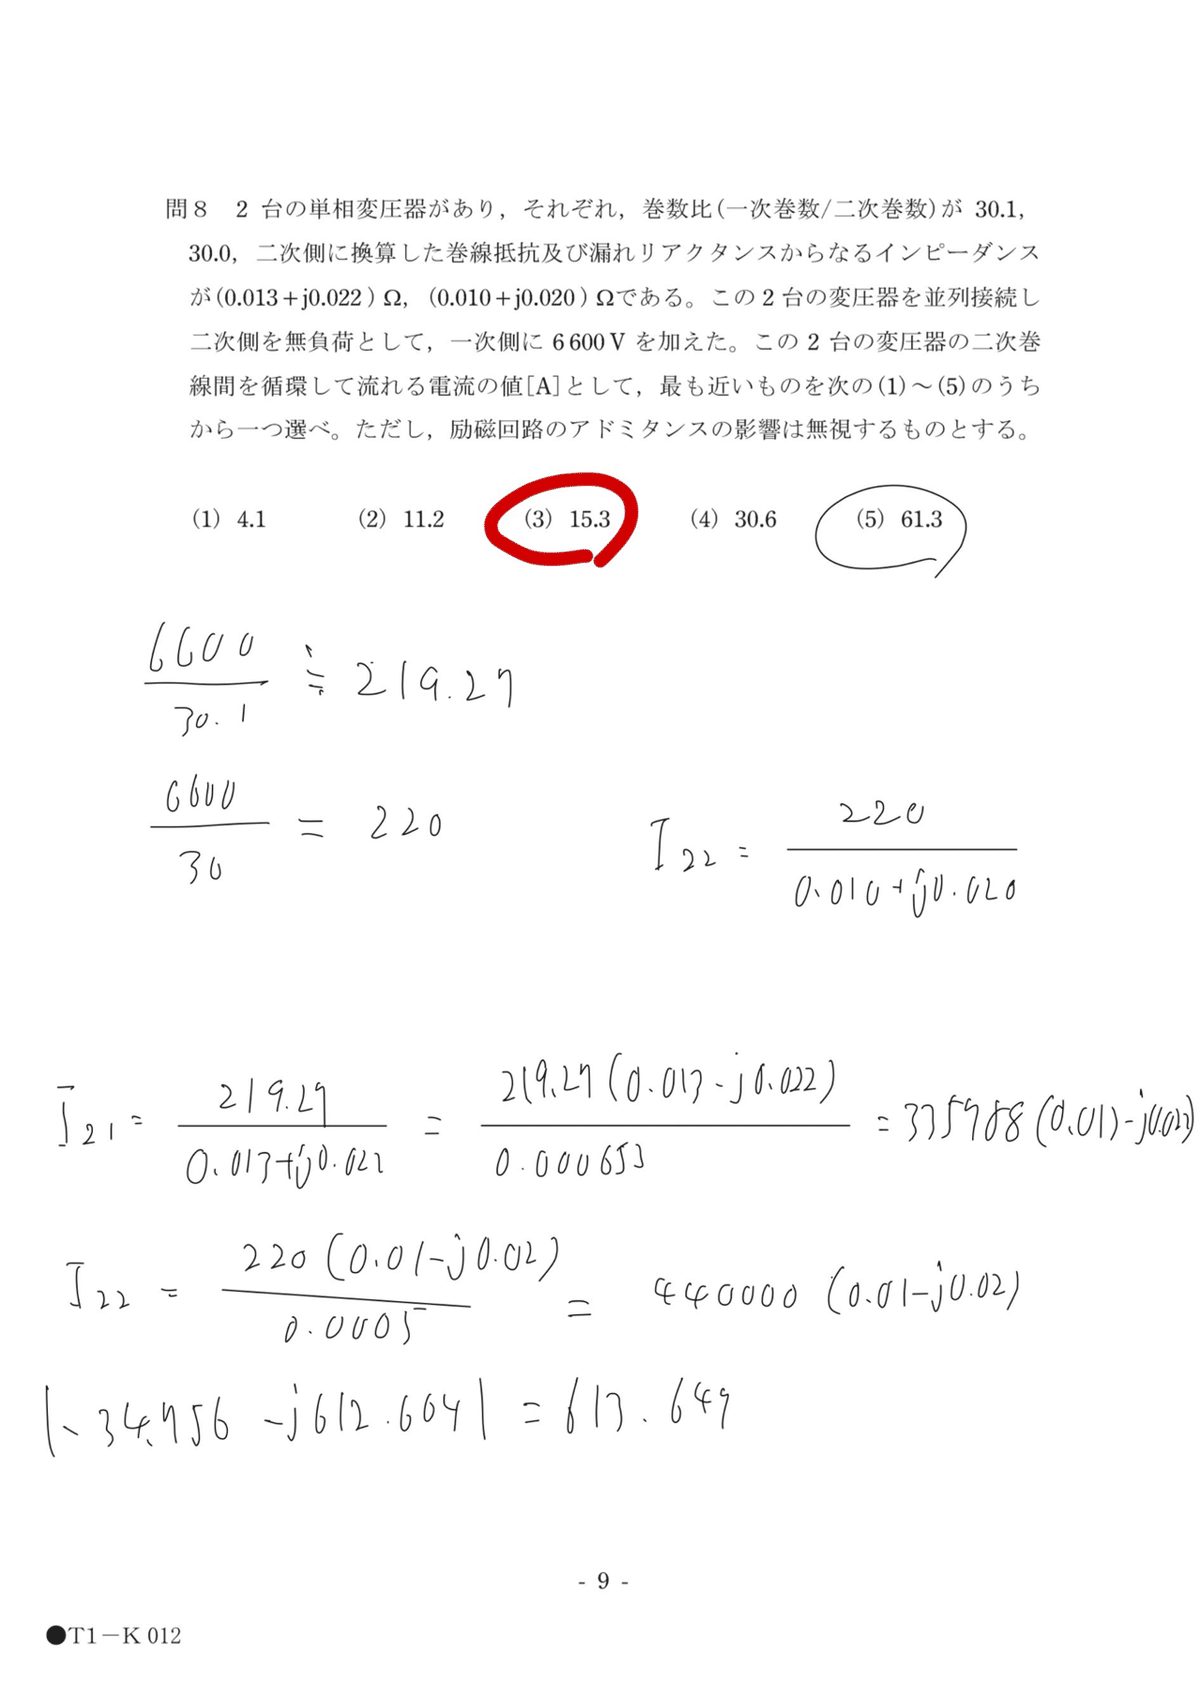 問8 2 台の単相変圧器があり，それぞれ，巻数比(一次巻数/二次巻数)が 30.1，
30.0，二次側に換算した巻線抵抗及び漏れリアクタンスからなるインピーダンス
が(0.013＋j0.022 ) Ω，(0.010＋j0.020 ) Ωである。この 2 台の変圧器を並列接続し
二次側を無負荷として，一次側に 6 600 V を加えた。この 2 台の変圧器の二次巻
線間を循環して流れる電流の値[A]として，最も近いものを次の(1)～(5)のうち
から一つ選べ。ただし，励磁回路のアドミタンスの影響は無視するものとする。
(1) 4.1 (2) 11.2 (3) 15.3 (4) 30.6 (5) 61.3
6600/30.1 ≒ 219.27
6600/30 = 220
I22 = 220/0.010+j0.020
I21 = 219.27/0.013+j0.022 = 219.27(0.013-j0.022)/0.000653 = 335788(0.013-j0.022)
I22 = 220(0.01-j0.02)/0.0005 = 440000 (0.01-j0.02)
|-34.756 -j612.664| = 613.649
- 9 -
●T1－K 012